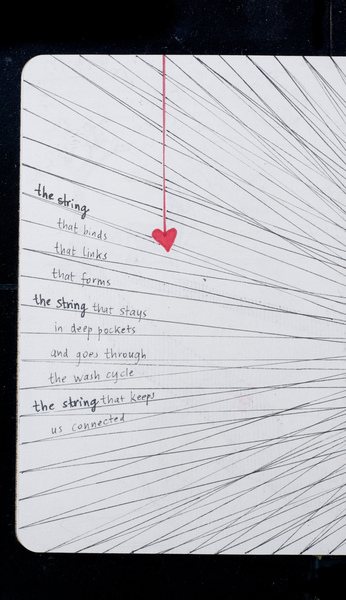 the string
that binds
that links
that forms
the string that stays
in deep pockets
and goes through
the wash cycle
the string that keeps
us connected